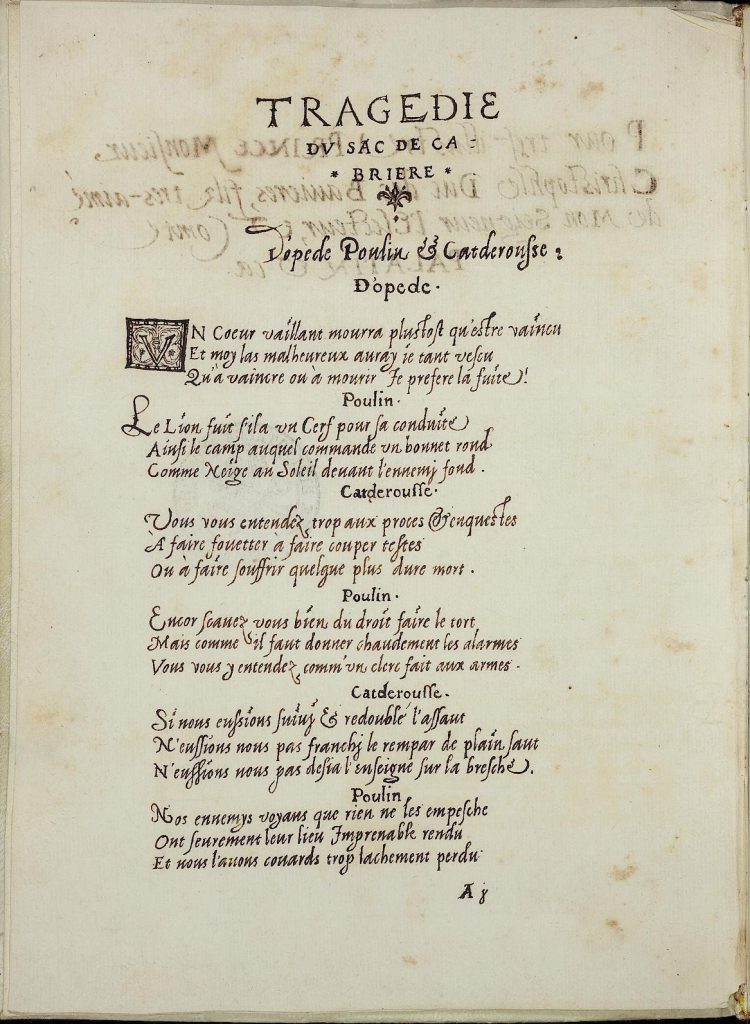 TRAGEDIE
DV SAC DE CA-
* BRIERE *
D'opede Poulin & Catderousse:
D'opede.
VN Coeur vaillant mourra plustost qu'estre vaincu
Et moy las malheureux auray ie tant vescu
Qu'à vaincre ou à mourir Je prefere la fuite!
Poulin.
Le Lion fuit sil a vn Cerf pour sa conduite
Ainsi le camp auquel commande vn bonnet rond
Comme Neige au Soleil deuant l'ennemj fond.
Catderousse.
Vous vous entendez trop aux proces & enquestes
À faire fouetter à faire couper testes
Ou à faire souffrir quelque plus dure mort.
Poulin.
Encor scauez vous bien du droit faire le tort
Mais comme il faut donner chaudement les alarmes
Vous vous y entendez comm'vn clerc fait aux armes.
Catderousse.
Si nous eussions suiuj & redoublé l'assaut
N'eussions nous pas franchj le rempar de plain saut
N'eussions nous pas desia l'enseigne sur la bresche.
Poulin
Nos ennemys voyans que rien ne les empesche
Ont seurement leur lieu Imprenable rendu
Et nous l'auons couards trop lachement perdu
A 8
Pour
PRINCE Monsieur,
Christophle Duc de Bauieres filz tres-aimé
de Mon Seigneur l'Electeur Comte
PALATIN